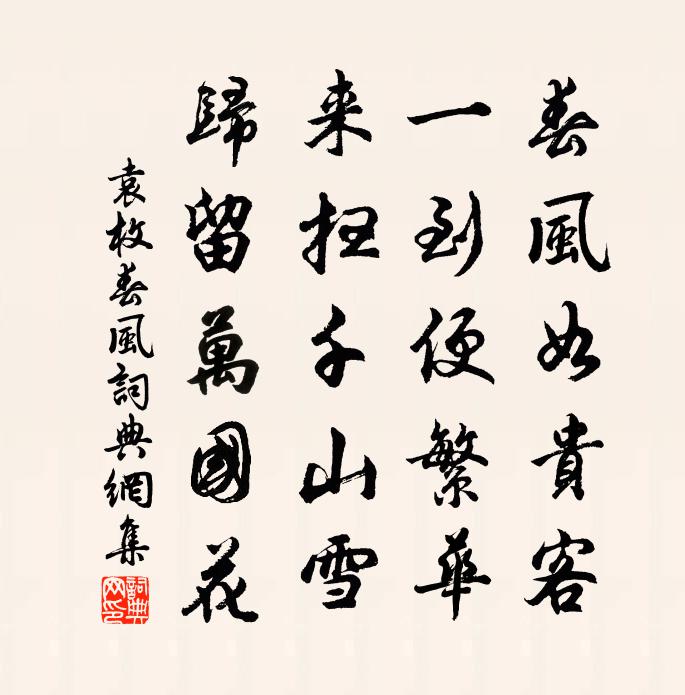 春風如貴客
一到便繁華
来掃千山雪
歸留萬國花
袁枚春風詞典網集
詞典網印